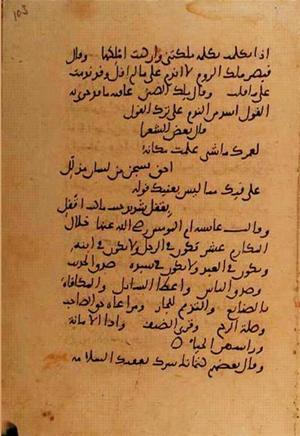 103
اذا تكلمت بكلمه ملكتني وان هي املكها وقال
قيصر ملك الروم لا اندم على ما لم اقل وقد ندمت
على ما قلت وقال ملك الصين عاقبه ما قد جرى به
القول اشد من الندم على ترك القول
قال بعض الشعرا
لعمرك ما شي علمت مكانه
احق بسجن من لسان مذلل
على فيك مما ليس يعنيك قوله
بقفل شديد حيث ما كنت اقفل
وقالت عايشه ام المومنين رضى الله عنها خلال
المكارم عشر تكون في الرجل ولا تكون في ابنه
وتكون في العبد ولا تكون في سيده صدق الحديث
وصدق الناس واعطا السائل والمكافاه
بالصنايع والتذمم للجار ومراعاة حق الصاحب
وصلة الرحم وقرى الضيف واداا الامانة
وراسهن الحيا
وقال بعضهم كتمانك سرك يعقبك السلامه